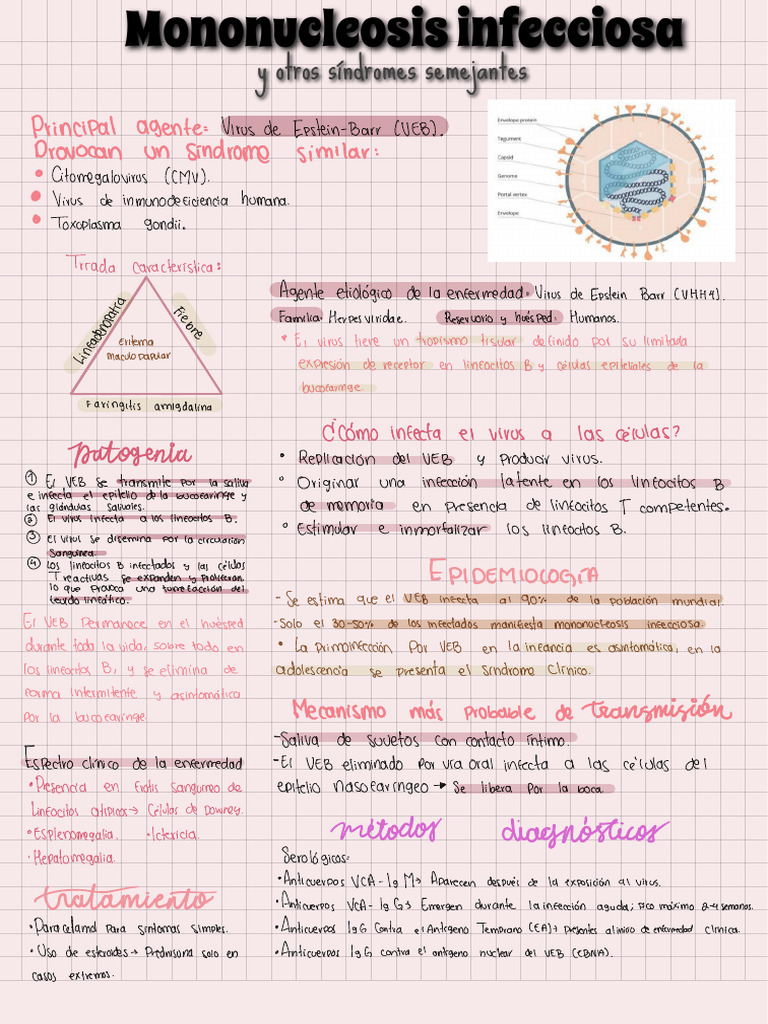 Mononucleosis infecciosa
y otros síndromes semejantes
Principal agente: Virus de Epstein-Barr (VEB).
Provocan un síndrome similar:
• Citomegalovirus (CMV).
• Virus de inmunodeficiencia humana.
• Toxoplasma gondii.
Envelope protein
Tegument
Capsid
Genome
Portal vertex
Envelope
Triada característica:
Lineadenopatía
Fiebre
Eritema
maculopapular
Faringitis amigdalina
Agente etiológico de la enfermedad: Virus de Epstein Barr (VHH4).
Familia: Herpesviridae. Reservorio y huésped: Humanos.
• El virus tiene un tropismo tisular definido por su limitada
expresión de receptor en linfocitos B y células epiteliales de la
bucofaringe
patogenia
① El VEB se transmite por la saliva
e infecta el epitelio de la bucofaringe y
las glándulas salivales.
② El virus infecta a los linfocitos B.
③ El virus se disemina por la circulación
sanguínea.
④ Los linfocitos B infectados y las células
T reactivas se expanden y proliferan
lo que provoca una tumefacción del
tejido linfático.
El VEB permanece en el huésped
durante toda la vida, sobre todo en
los linfocitos B, y se elimina de
forma intermitente y asintomática
por la bucofaringe.
¿Cómo infecta el virus a las células?
• Replicación del VEB y producir virus.
• Originar una infección latente en los linfocitos B
de memoria en presencia de linfocitos T competentes.
• Estimular e inmortalizar los linfocitos B.
EPIDEMIOLOGÍA
- Se estima que el VEB infecta al 90% de la población mundial.
-Solo el 30-50% de los infectados manifiesta mononucleosis infecciosa.
• La primoinfección por VEB en la infancia es asintomática, en la
adolescencia se presenta el síndrome clínico.
Mecanismo más probable de transmisión
-Saliva de sujetos con contacto íntimo.
-El VEB eliminado por vía oral infecta a las células del
epitelio nasofaríngeo → Se libera por la boca.
Espectro clínico de la enfermedad
• Presencia en frotis sanguíneo de
linfocitos atípicos → Células de Downey.
• Esplenomegalia. • Ictericia.
• Hepatomegalia.
tratamiento
• Paracetamol para síntomas simples.
• Uso de esteroides → Prednisona solo en
casos extremos.
métodos diagnósticos
Serológicos:
• Anticuerpos VCA- Ig M → Aparecen después de la exposición al virus.
• Anticuerpos VCA- Ig G → Emergen durante la infección aguda; Pico máximo 2-4 semanas.
• Anticuerpos Ig G contra el Antígeno Temprano (EA) → Presentes al inicio de enfermedad clínica.
• Anticuerpos Ig G contra el antígeno nuclear del VEB (EBNA).